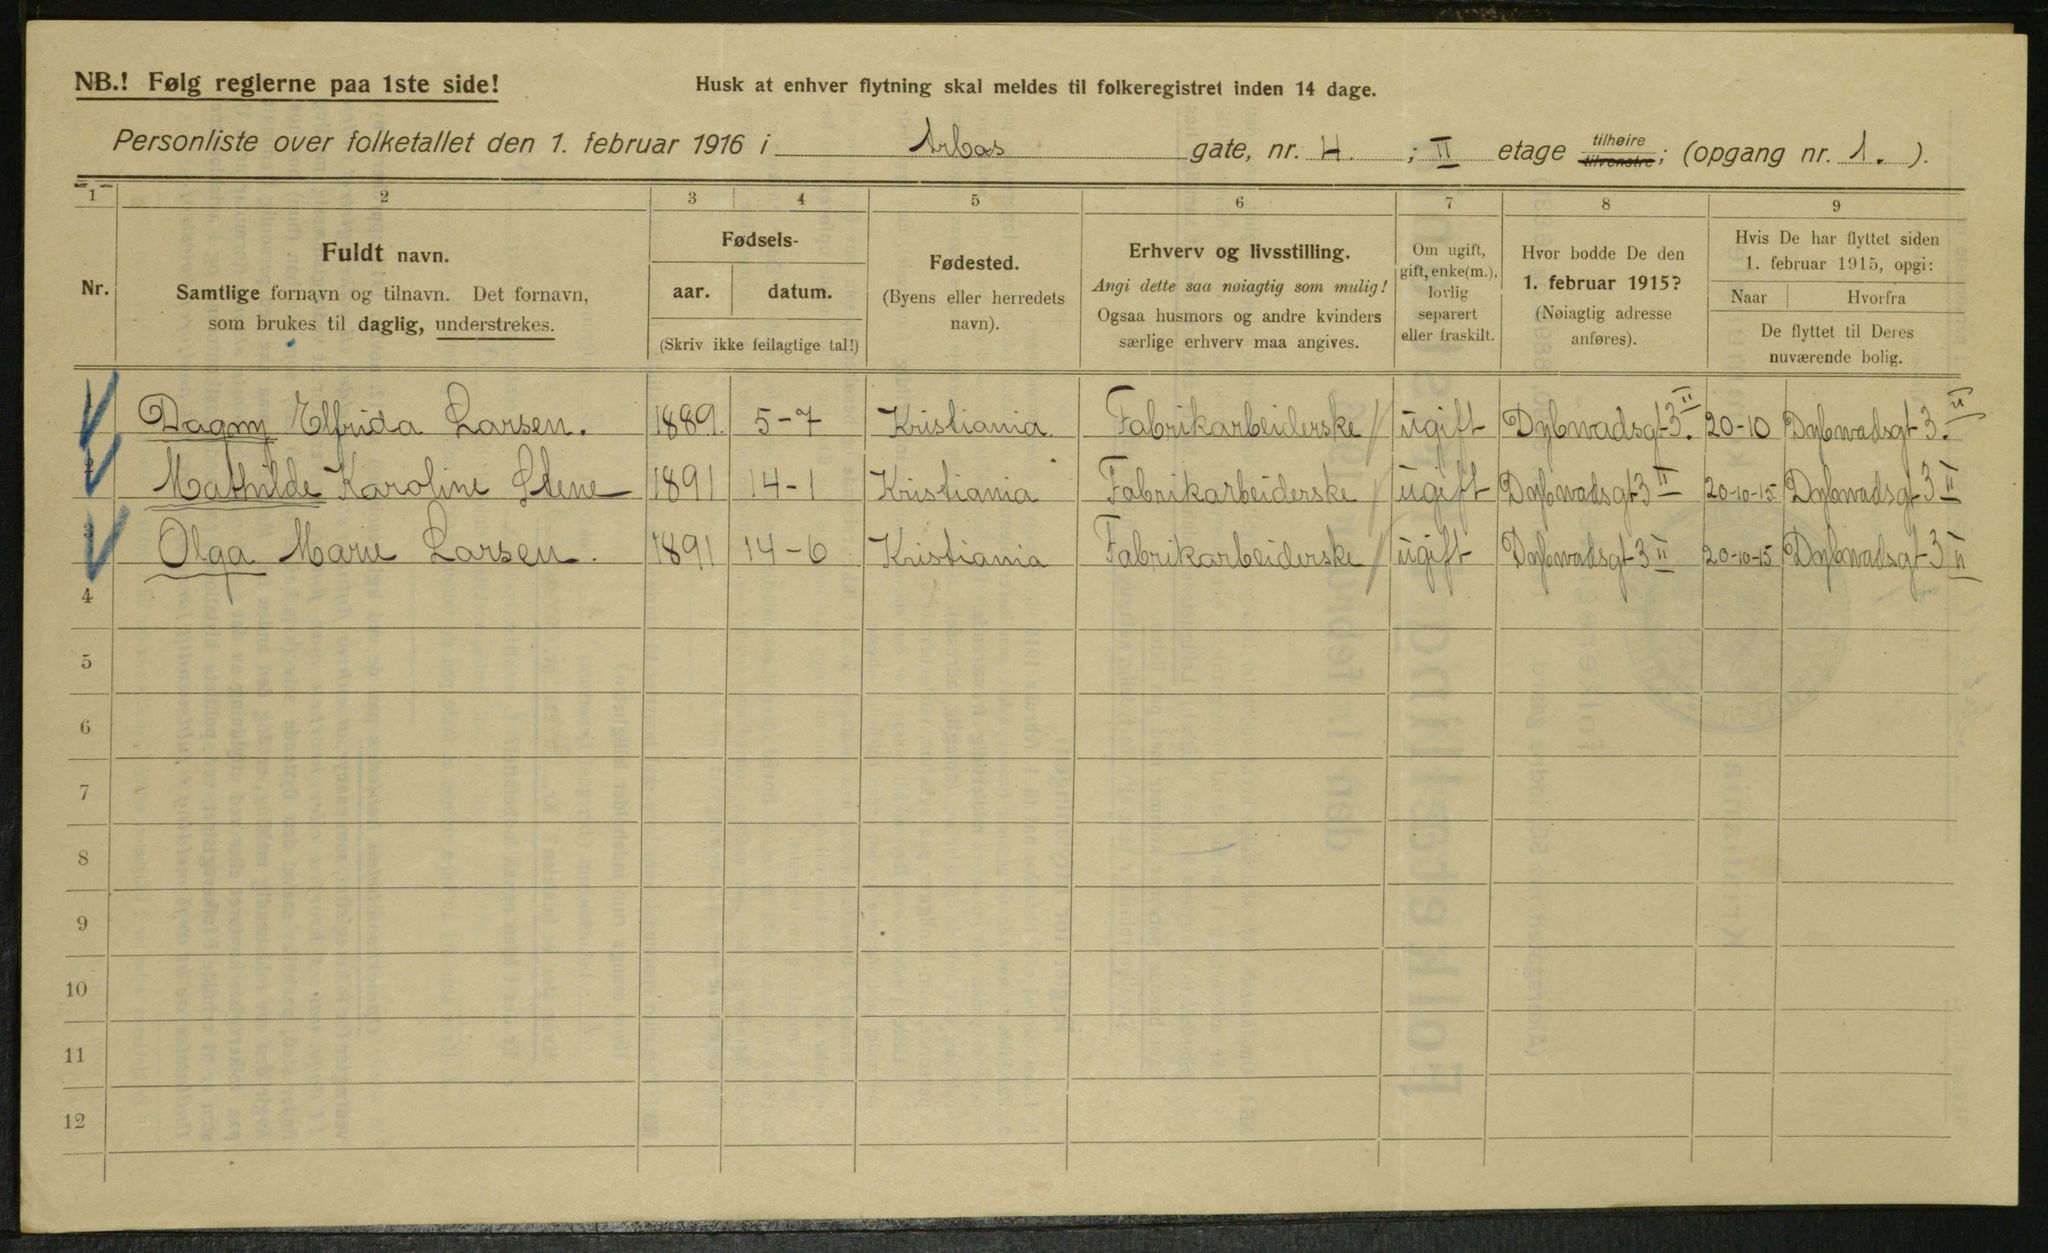 NB.! Følg reglerne paa 1ste side! Husk at enhver flytning skal meldes til folkeregistret inden 14 dage.
Personliste over folketallet den 1. februar 1916 i Arbos gate, nr. 4. ; II etage tilhøire tilvenstre; (opgang nr. 1. ).
1 2 3 4 5 6 7 8 9
Nr.
Fuldt navn.
Samtlige fornavn og tilnavn. Det fornavn,
som brukes til daglig, understrekes.
Fødsels-
aar. datum.
(Skriv ikke feilagtige tal!)
Fødested.
(Byens eller herredets
navn).
Erhverv og livsstilling.
Angi dette saa nøiagtig som mulig!
Ogsaa husmors og andre kvinders
særlige erhverv maa angives.
Om ugift,
gift, enke(m.),
lovlig
separert
eller fraskilt.
Hvor bodde De den
1. februar 1915?
(Nøiagtig adresse
anføres).
Hvis De har flyttet siden
1. februar 1915, opgi:
Naar Hvorfra
De flyttet til Deres
nuværende bolig.
Dagny Elfrida Larsen. 1889. 5-7 Kristiania. Fabrikarbeiderske ugift Dybwadsgt 3. II 20-10 Dybwadsgt 3. II
2 Mathilde Karoline Stene 1891 14-1 Kristiania Fabrikarbeiderske ugift Dybwadsgt 3 II 20-10-15 Dybwadsgt 3 II
3 Olga Marie Larsen. 1891 14-6 Kristiania Fabrikarbeiderske ugift Dybwadsgt 3 II 20-10-15 Dybwadsgt 3 II
4
5
6
7
8
9
10
11
12